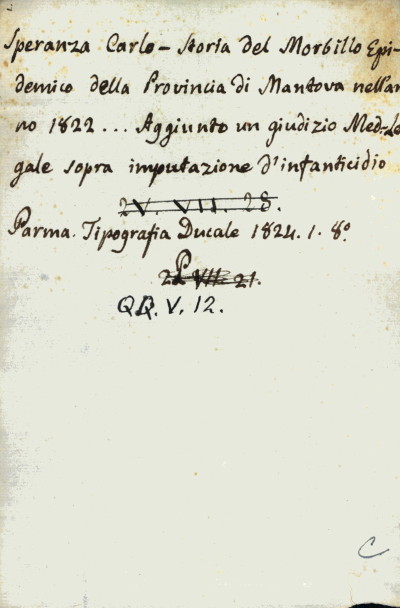 Speranza Carlo - Storia del Morbillo Epi-
demico della Provincia di Mantova nell'an
no 1822 ... Aggiunto un giudizio Med-Le
gale sopra imputazione d'infanticidio
2V. VII. 28.
Parma. Tipografia Ducale 1824. 1. 8º
VII 21.
QQ. V. 12.
C